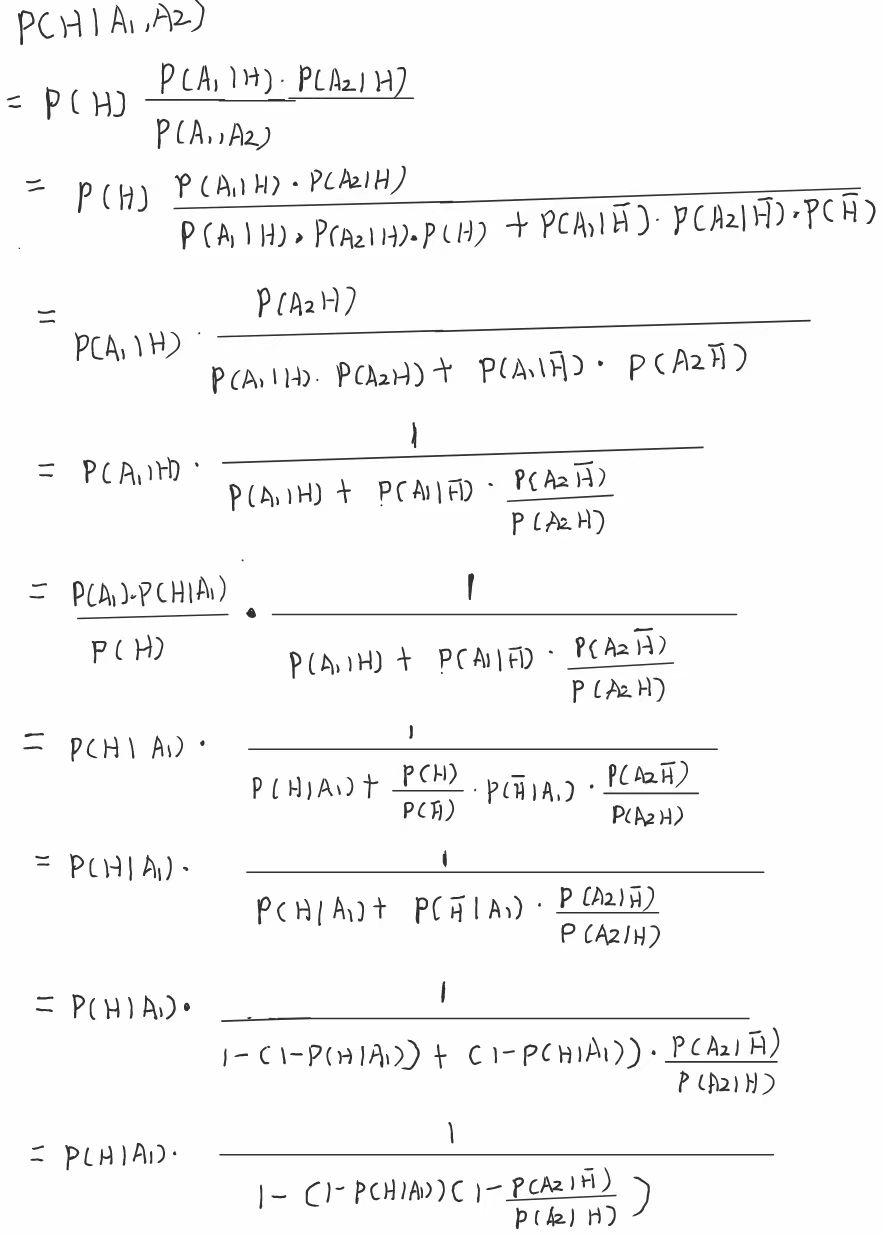 P(H|A₁,A₂)
= P(H) \frac{P(A₁|H)·P(A₂|H)}{P(A₁,A₂)}
= P(H) \frac{P(A₁|H)·P(A₂|H)}{P(A₁|H)·P(A₂|H)·P(H) + P(A₁|H̄)·P(A₂|H̄)·P(H̄)}
= P(A₁|H)·\frac{P(A₂H)}{P(A₁|H)·P(A₂H) + P(A₁|H̄)·P(A₂H̄)}
= P(A₁|H)·\frac{1}{P(A₁|H) + P(A₁|H̄)·\frac{P(A₂H̄)}{P(A₂H)}}
= \frac{P(A₁)·P(H|A₁)}{P(H)}·\frac{1}{P(A₁|H) + P(A₁|H̄)·\frac{P(A₂H̄)}{P(A₂H)}}
= P(H|A₁)·\frac{1}{P(H|A₁) + \frac{P(H)}{P(H̄)}·P(H̄|A₁)·\frac{P(A₂H̄)}{P(A₂H)}}
= P(H|A₁)·\frac{1}{P(H|A₁) + P(H̄|A₁)·\frac{P(A₂|H̄)}{P(A₂|H)}}
= P(H|A₁)·\frac{1}{1-(1-P(H|A₁)) + (1-P(H|A₁))·\frac{P(A₂|H̄)}{P(A₂|H)}}
= P(H|A₁)·\frac{1}{1-(1-P(H|A₁))(1-\frac{P(A₂|H̄)}{P(A₂|H)})}